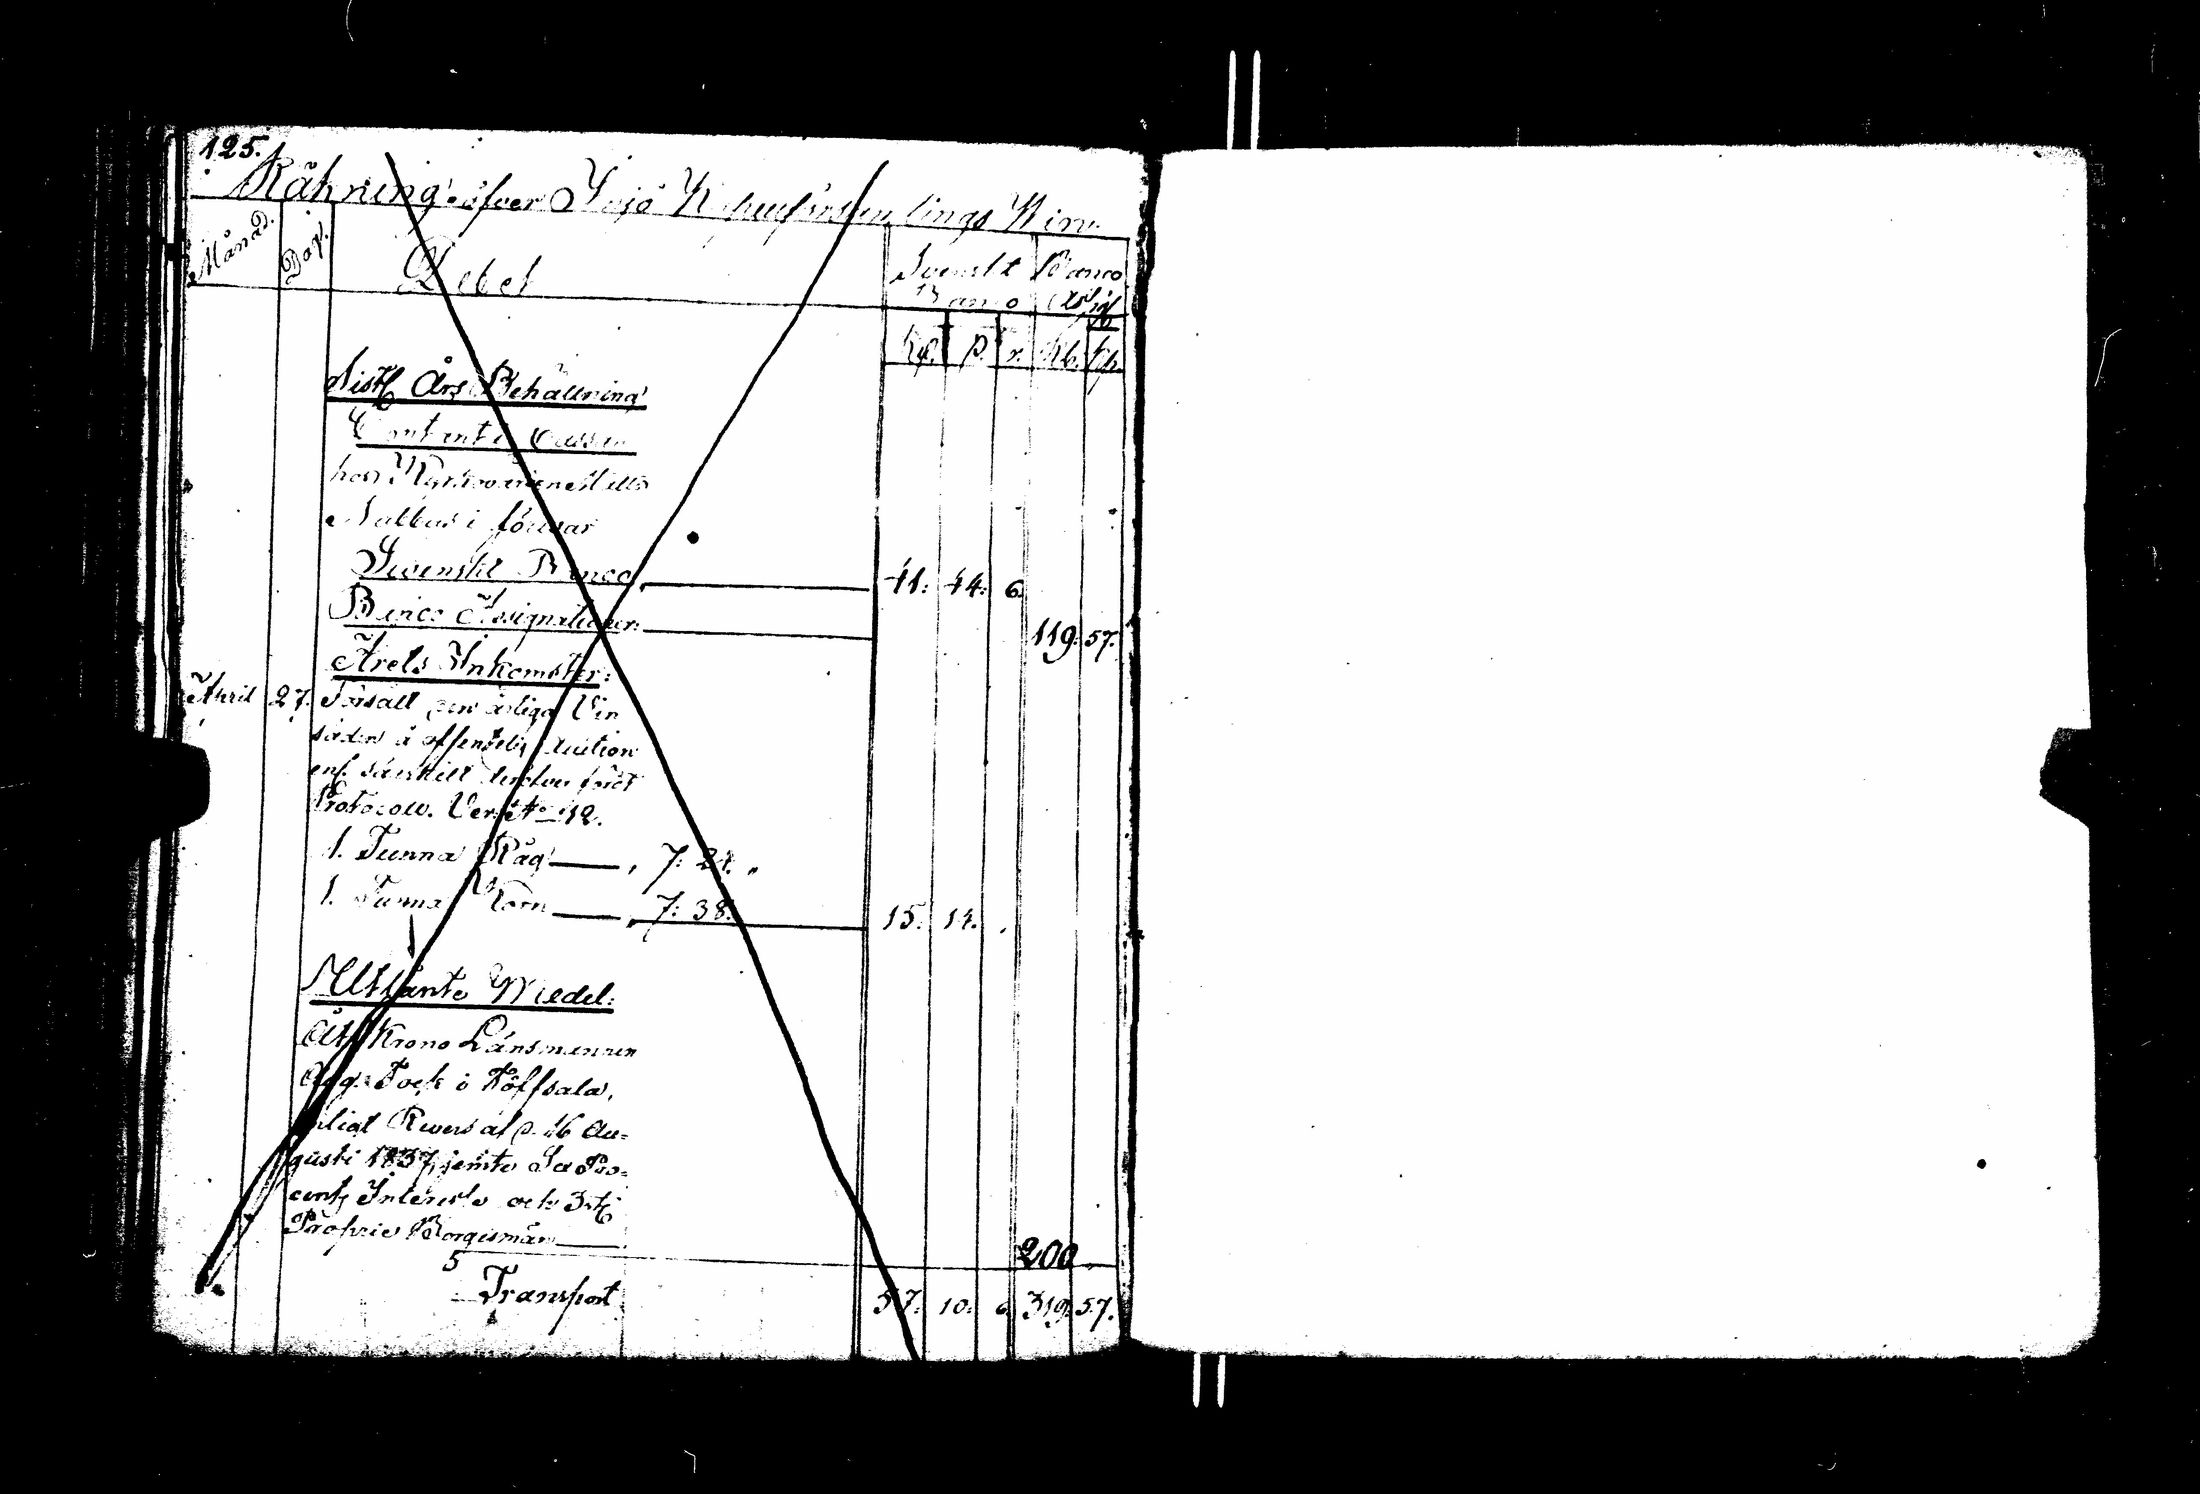 125.
Räkning öfver Ingå Kapellförsamlings Win
Månad. Dag. Debet Svenskt Banco Banco Assig
Rd. ß. r. Rb. Kp.
Sistl. Års Behållning
Contant i Cassan
hos Kyrkovärden Mells
Nabbas i förvar
Svenskt Banco 41: 44: 6
Banco Assignationer 119: 57.
Årets Inkomster:
April 27. Försålt den årliga Vin
säden å offentelig Auction
enl. särskilt deröfver fördt
Protocoll. Ver. No 12.
1. Tunna Råg 7: 24. "
1. Tunna Korn 7: 38. 15. 14. "
Utlånte Medel:
Åt Krono Länsmannen
Aug. Tock i Töffsala,
enligt Revers af d. 16 Au-
gusti 1837, jemte Sex Pro-
cents Interesse och 3ne
Proprie Borgesmän 200 "
5
Transport 57. 10: 6. 319: 57.